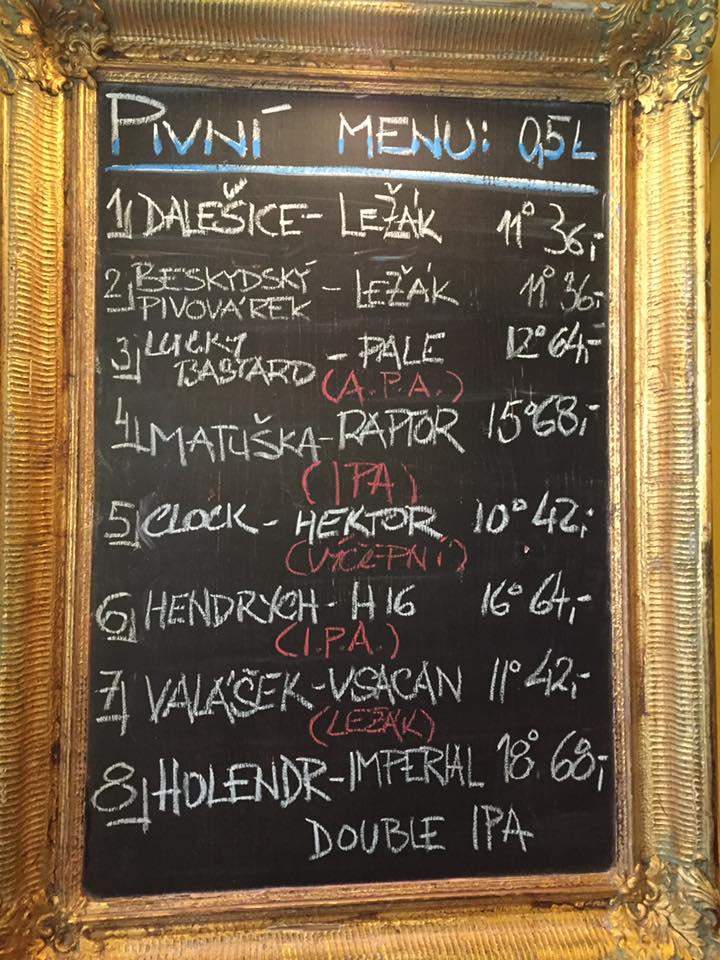 PIVNÍ MENU: 0,5L
1) DALEŠICE - LEŽÁK 11° 36,-
2) BESKYDSKÝ PIVOVÁREK - LEŽÁK 11° 36,-
3) LUCKY BASTARD - PALE 12° 64,-
(A.P.A.)
4) MATUŠKA - RAPTOR 15° 68,-
(IPA)
5) CLOCK - HEKTOR 10° 42,-
(VÝČEPNÍ)
6) HENDRYCH - H16 16° 64,-
(I.P.A.)
7) VALÁŠEK - VSACAN 11° 42,-
(LEŽÁK)
8) HOLENDR - IMPERIAL 18° 68,-
DOUBLE IPA